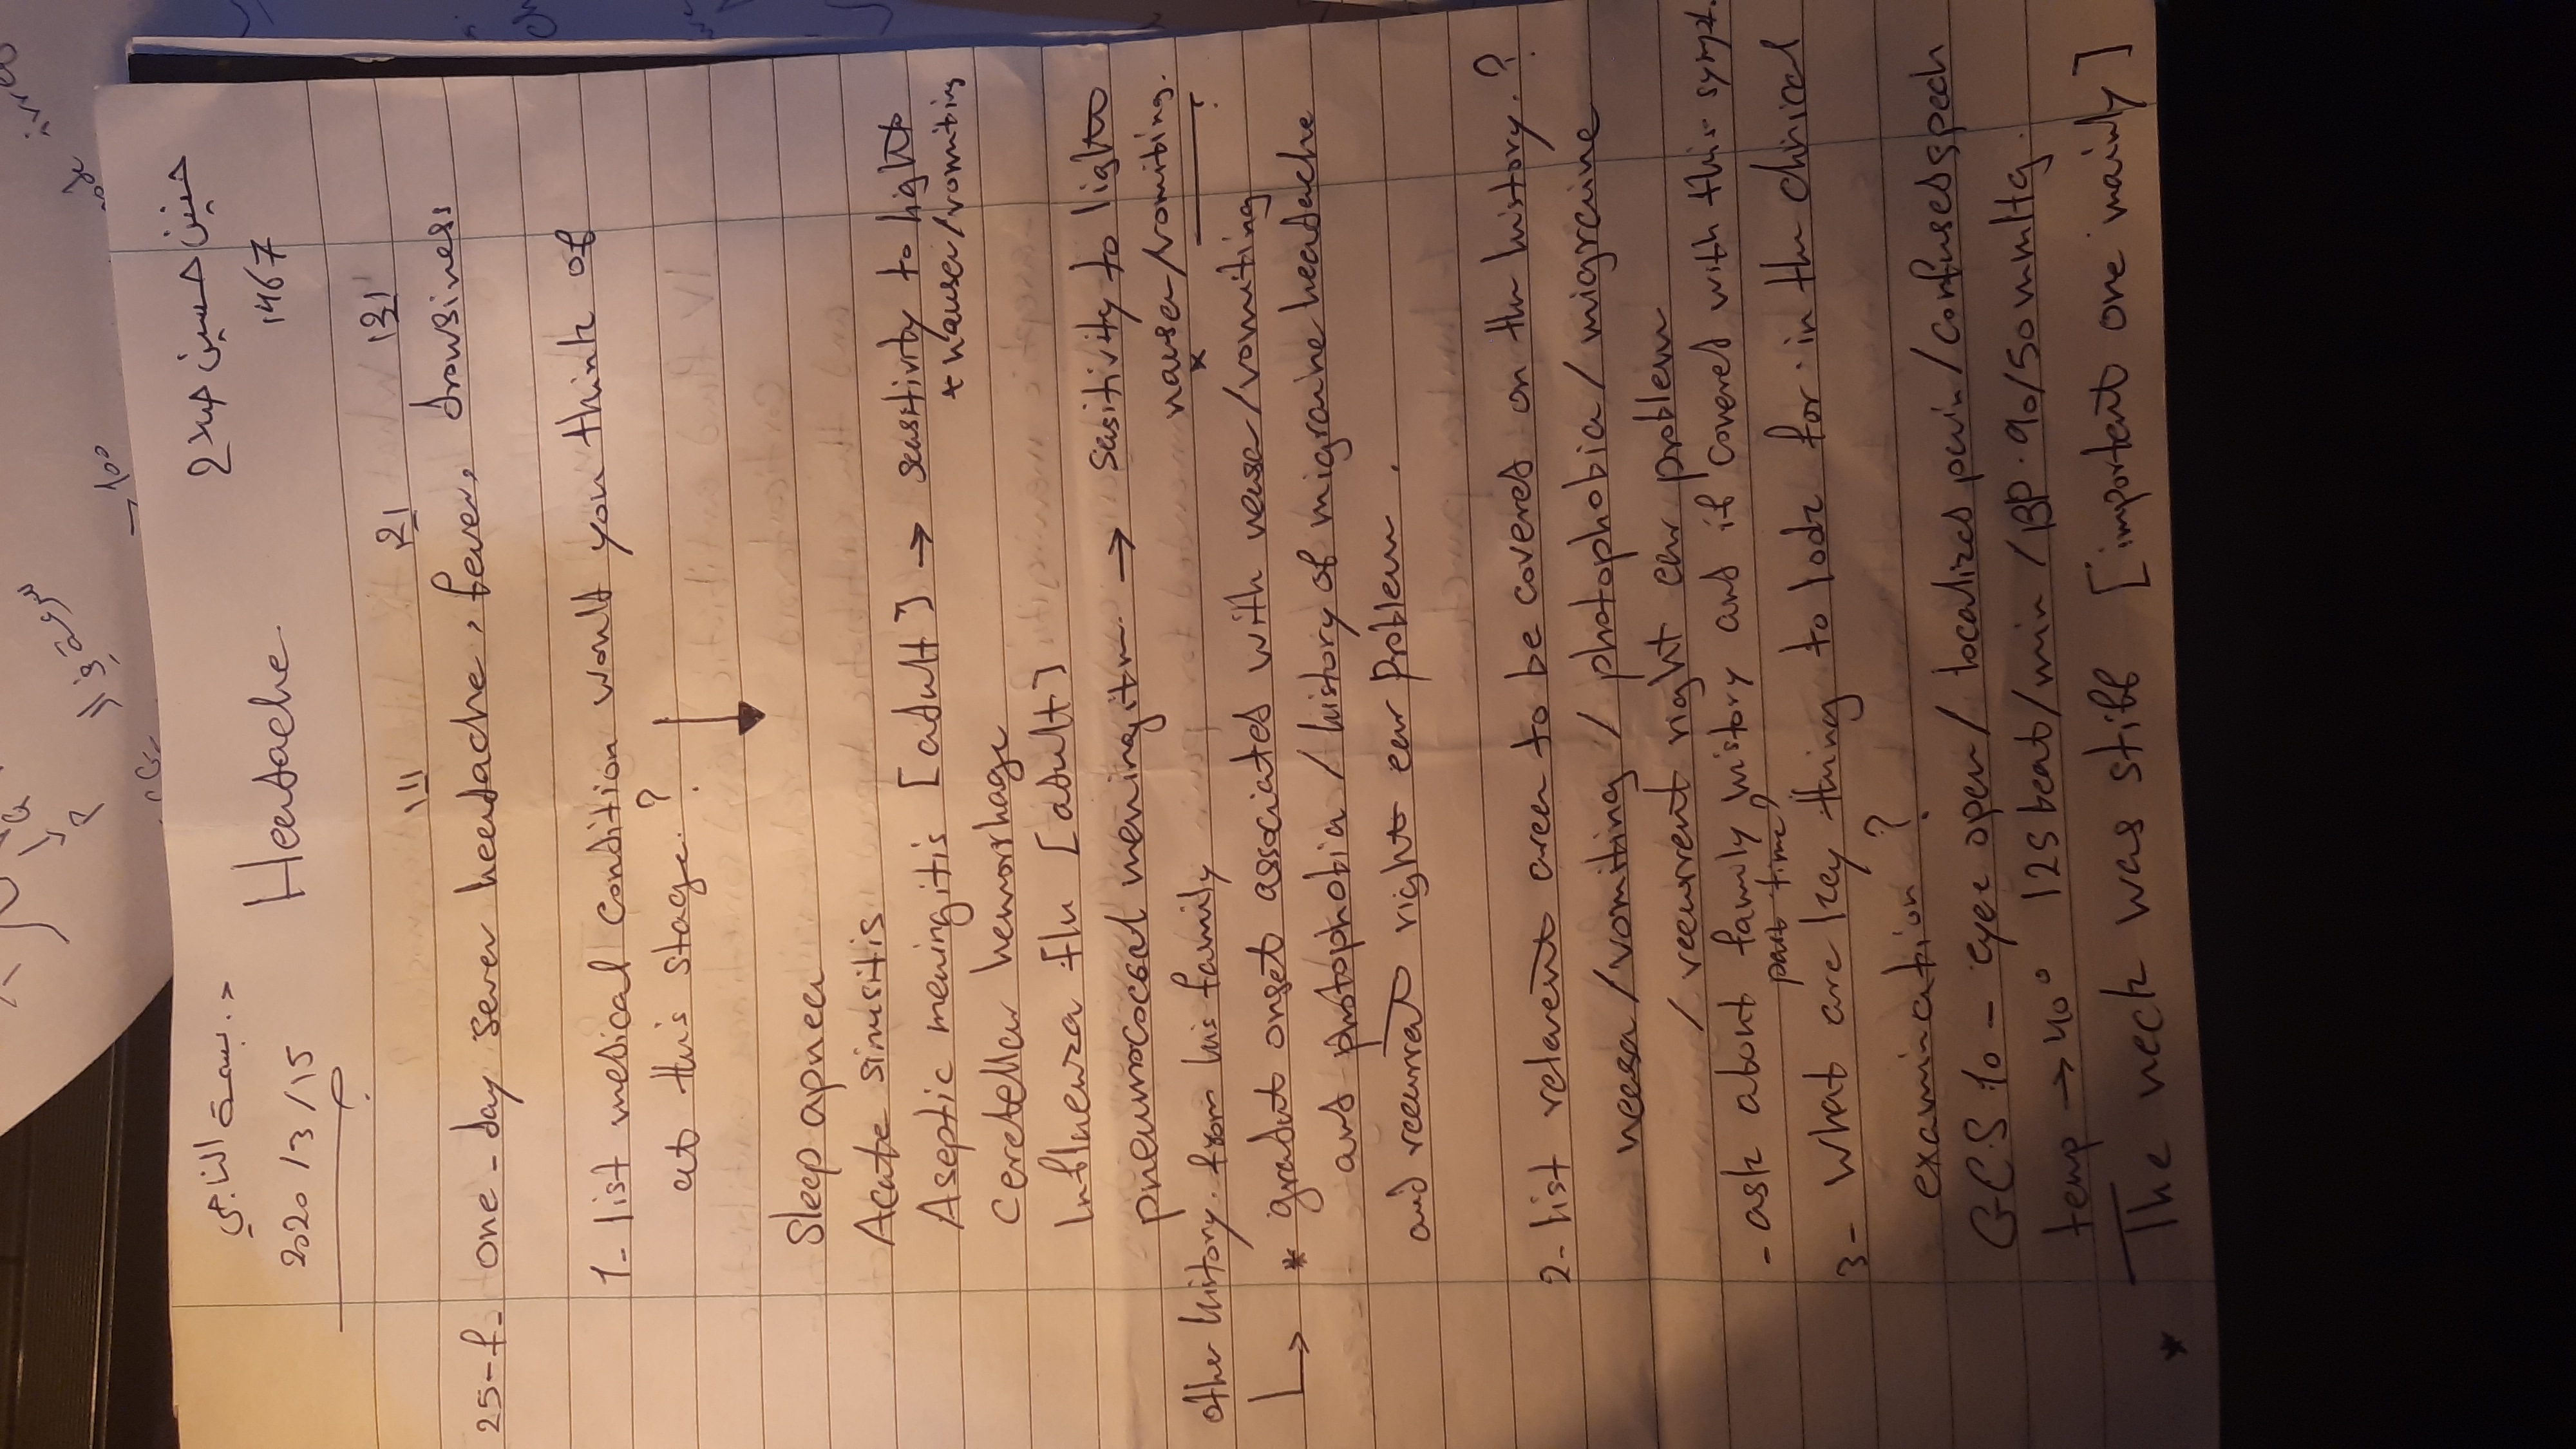 حنين حسين محمد
1467
Headache
2020/3/15
111 121 131
25-f- one-day sever headache, fever, drowsiness
1- list medical condition woult you think of
at this stage?
Sleep apnea
Acute sinusitis
Aseptic meningitis [adult] → sensitivity to light
+ nausea/vomiting
Cerebellar hemorrhage
Influenza flu [adult]
pneumococcal meningitis → sensitivity to light
nausea/vomiting.
other history. from his family
↳ * gradut onset associated with neuse/vomiting
and photophobia / history of migraine headache
and recurrent right ear problem.
2- list relavent area to be covered on the history?
neesa/vomiting / photophobia / migraine
/ recurrent right ear problem
- ask about family history and if covered with this sympt.
past time,
3- what are key thing to look for in the clinical
examination?
G.C.S 10 - eye open / localized pain / confused speech
temp → 40° 125 beat/min / BP. 90/50 mmHg.
* The neck was stiff [importent one mainly]